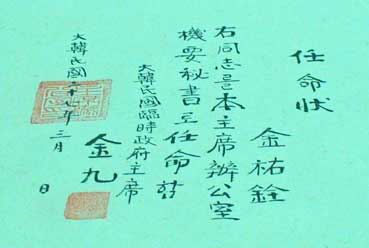 任命状
金祐銓
右同志를本主席辦公室
機要秘書로任命함
大韓民國臨時政府主席
金九
大韓民國二十八年三月 日